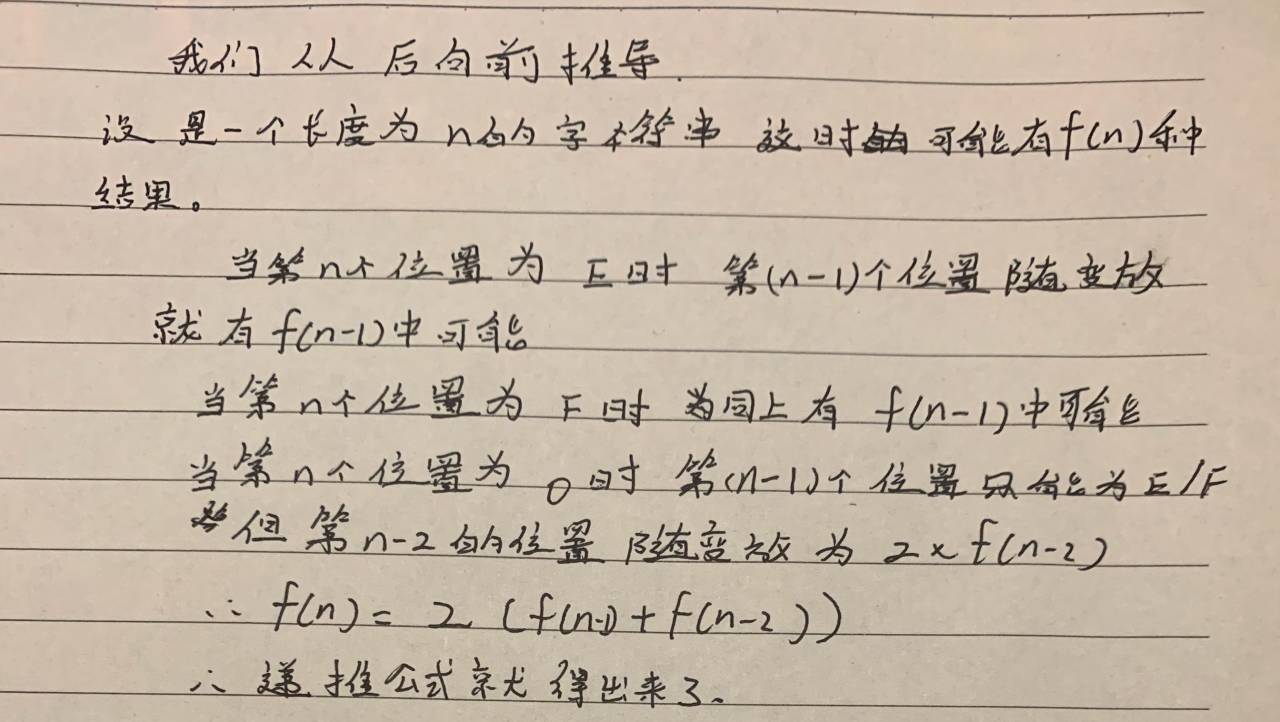 我们从后向前推导.
设是一个长度为n的字符串 这时可能有f(n)种
结果。
当第n个位置为E时 第(n-1)个位置随变放
就有f(n-1)中可能
当第n个位置为F时 为同上有f(n-1)中可能
当第n个位置为O时 第(n-1)个位置只能为E/F
但第n-2的位置随变放为2×f(n-2)
∴ f(n)= 2 (f(n-1)+f(n-2))
∴ 递推公式就得出来了.